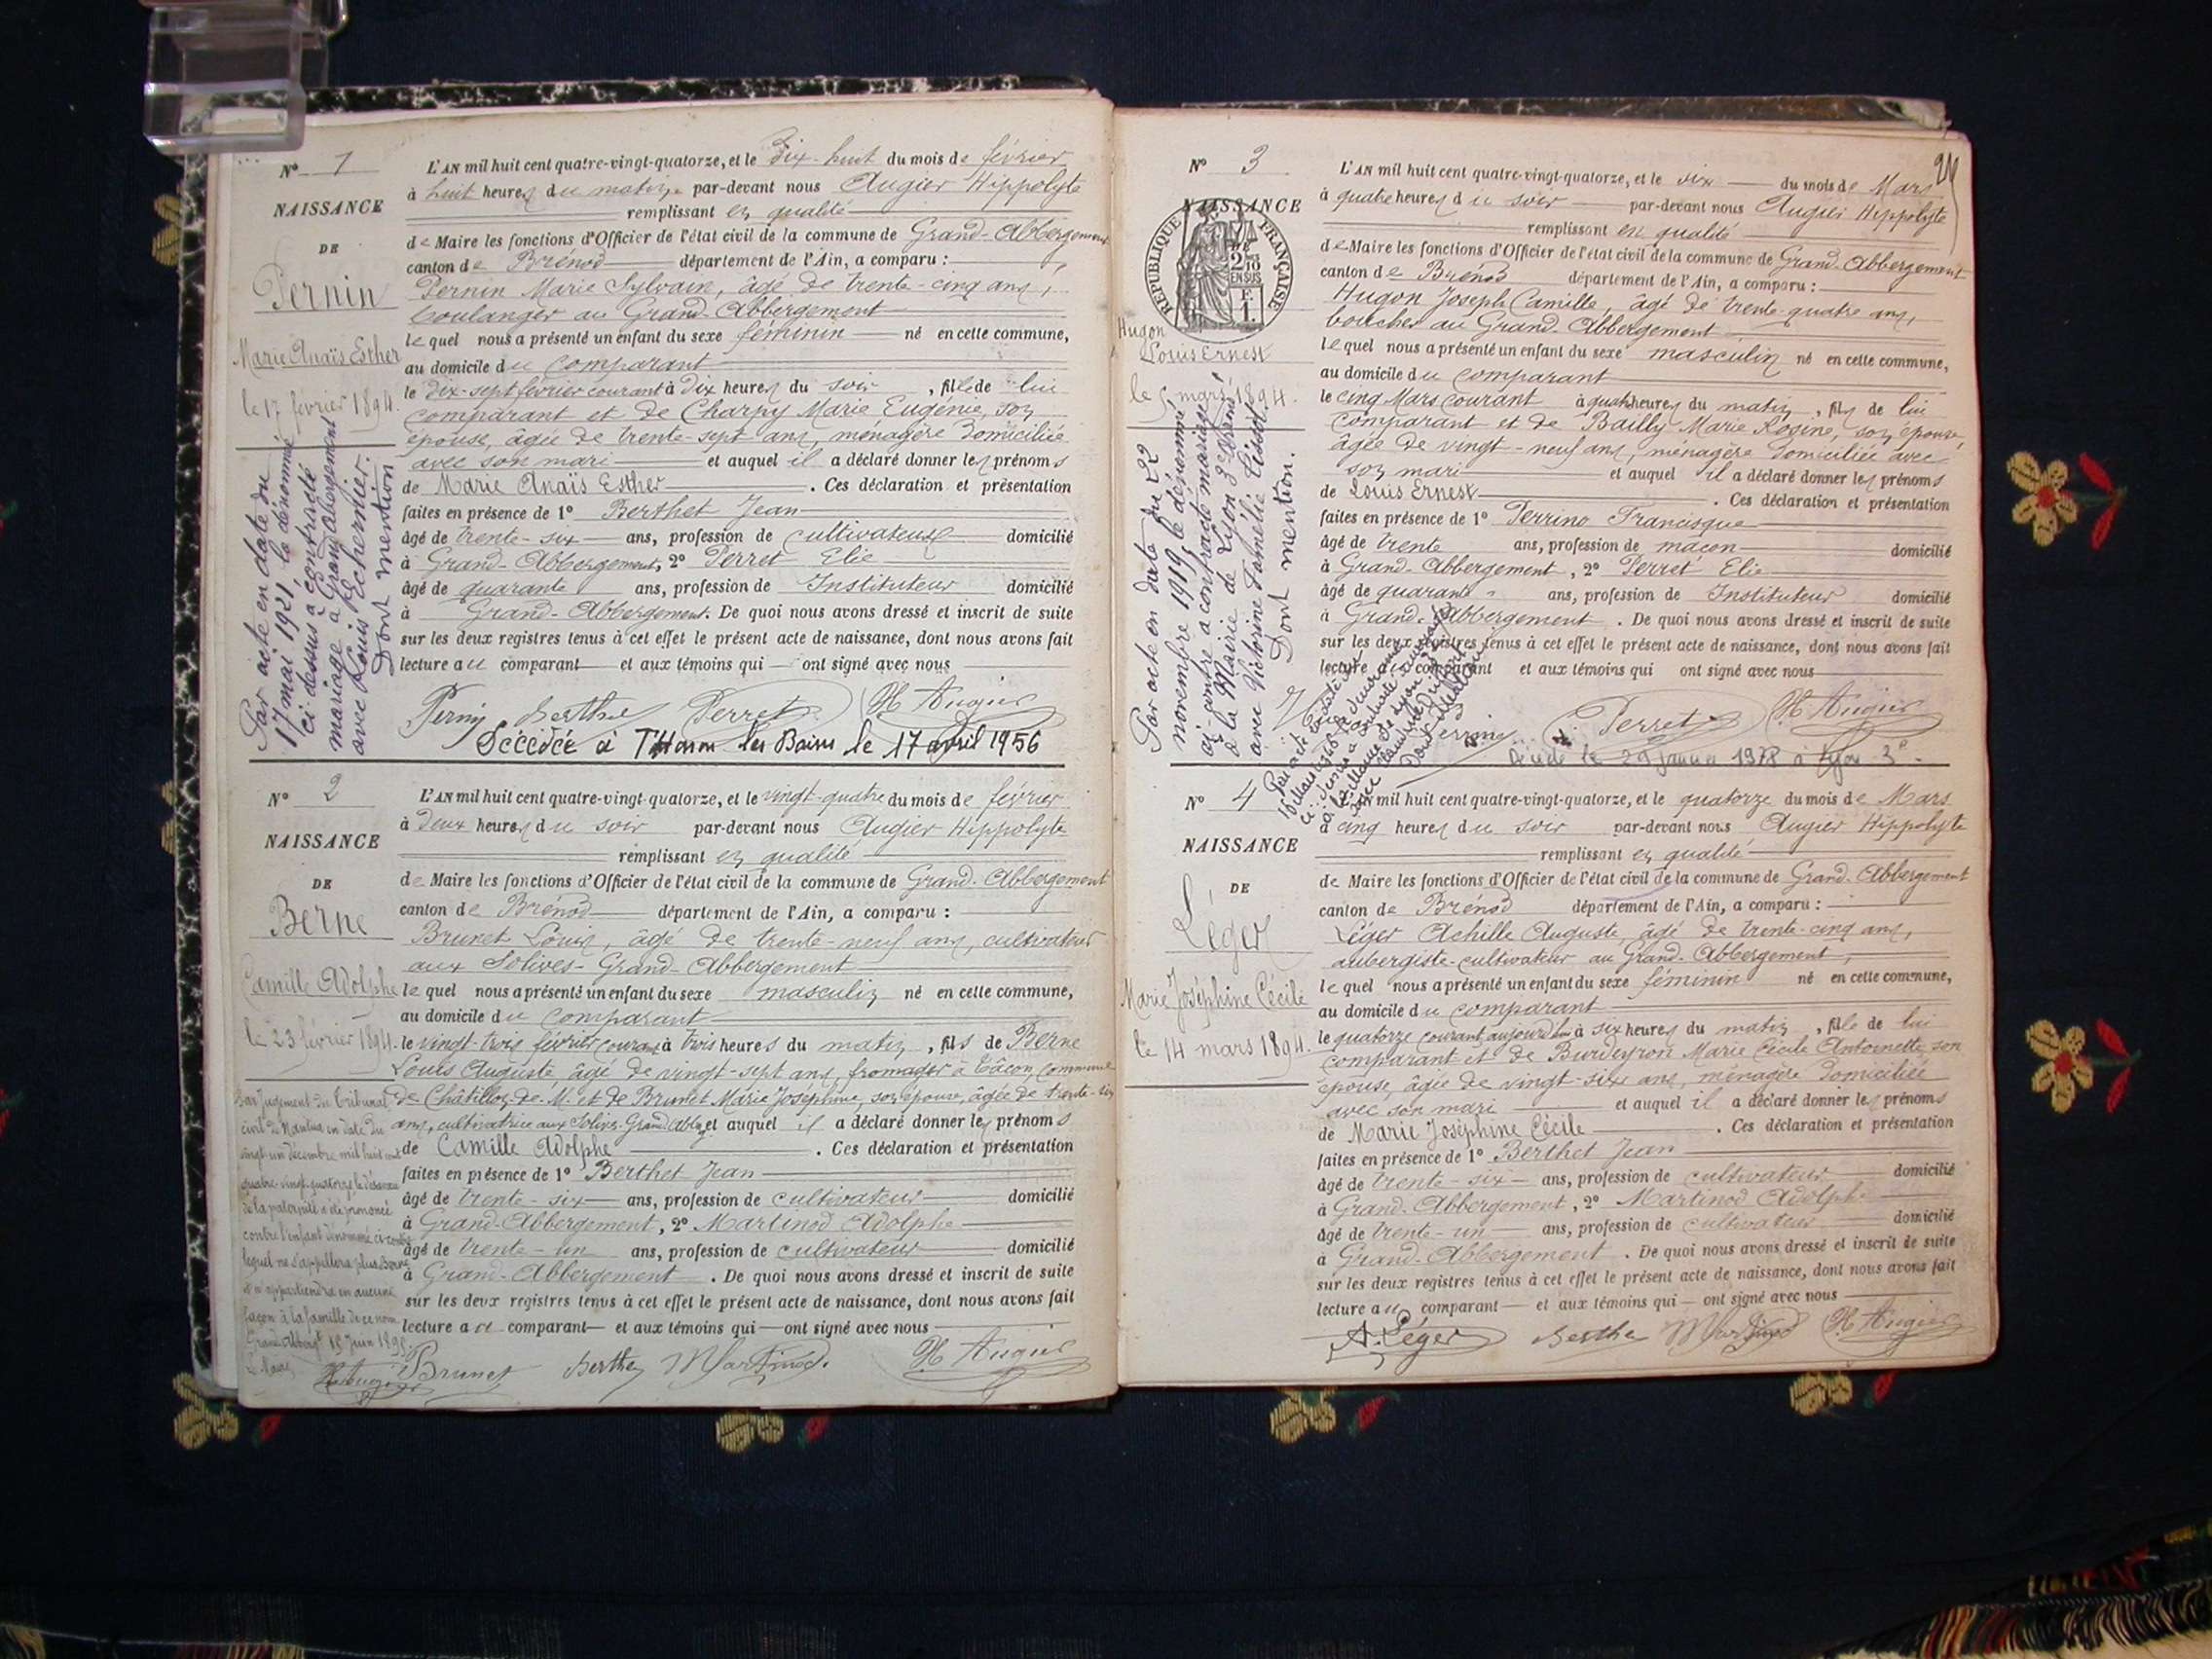 N° 1
NAISSANCE
DE
Pernin
Marie Anaïs Esther
le 17 février 1894.
Par acte en date du
17 mai 1921 la dénommée
ci-dessus a contracté
mariage à Grand Abergement
avec Louis Echernier.
Dont mention
L'AN mil huit cent quatre-vingt-quatorze, et le Dix-huit du mois de février
à huit heures du matin, par-devant nous Augier Hippolyte
remplissant en qualité
de Maire les fonctions d'Officier de l'état civil de la commune de Grand-Abbergement
canton de Brénod département de l'Ain, a comparu :
Pernin Marie Sylvain, âgé de trente-cinq ans,
boulanger au Grand-Abbergement
lequel nous a présenté un enfant du sexe féminin né en cette commune,
au domicile du comparant
le dix-sept février courant à dix heures du soir, fille de lui
comparant et de Charpy Marie Eugénie, son
épouse, âgée de trente-sept ans, ménagère domiciliée
avec son mari et auquel il a déclaré donner les prénoms
de Marie Anaïs Esther. Ces déclaration et présentation
faites en présence de 1° Berthet Jean
âgé de trente-six ans, profession de cultivateur domicilié
à Grand-Abbergement, 2° Perret Elie
âgé de quarante ans, profession de Instituteur domicilié
à Grand-Abbergement. De quoi nous avons dressé et inscrit de suite
sur les deux registres tenus à cet effet le présent acte de naissance, dont nous avons fait
lecture au comparant et aux témoins qui ont signé avec nous
Pernin Berthet Perret H. Augier
Décédée à Thonon les Bains le 17 avril 1956
N° 2
NAISSANCE
DE
Berne
Camille Adolphe
le 23 février 1894.
Par jugement du tribunal
civil de Nantua en date du
vingt-un décembre mil huit cent
quatre-vingt-quatorze le désaveu
de la paternité a été prononcé
contre l'enfant dénommé ci-contre
lequel ne s'appellera plus Berne
et n'appartiendra en aucune
façon à la famille de ce nom
Grand-Abbergt 15 juin 1895.
Le Maire
H. Augier
L'AN mil huit cent quatre-vingt-quatorze, et le vingt-quatre du mois de février
à deux heures du soir par-devant nous Augier Hippolyte
remplissant en qualité
de Maire les fonctions d'Officier de l'état civil de la commune de Grand-Abbergement
canton de Brénod département de l'Ain, a comparu :
Brunet Louis, âgé de trente-neuf ans, cultivateur
aux Solives-Grand-Abbergement
lequel nous a présenté un enfant du sexe masculin né en cette commune,
au domicile du comparant
le vingt-trois février courant à trois heures du matin, fils de Berne
Louis Auguste âgé de vingt-sept ans, fromager à Tâcon, commune
de Châtillon-de-M. et de Brunet Marie Joséphine, son épouse, âgée de trente-six
ans, cultivatrice aux Solives-Grand-Abbergt et auquel il a déclaré donner les prénoms
de Camille Adolphe. Ces déclaration et présentation
faites en présence de 1° Berthet Jean
âgé de trente-six ans, profession de cultivateur domicilié
à Grand-Abbergement, 2° Martinod Adolphe
âgé de trente-un ans, profession de cultivateur domicilié
à Grand-Abbergement. De quoi nous avons dressé et inscrit de suite
sur les deux registres tenus à cet effet le présent acte de naissance, dont nous avons fait
lecture au comparant et aux témoins qui ont signé avec nous
Brunet Berthet Martinod. H. Augier
24
N° 3
NAISSANCE
DE
RÉPUBLIQUE FRANÇAISE
2/10 EN SUS
F. 1.
Hugon
Louis Ernest
le 5 mars 1894.
Par acte en date du 22
novembre 1919, le dénommé
ci-contre a contracté mariage
à la Mairie de Lyon 3e
avec Victorine Tissot.
Dont mention.
L'AN mil huit cent quatre-vingt-quatorze, et le six du mois de Mars
à quatre heures du soir par-devant nous Augier Hippolyte
remplissant en qualité
de Maire les fonctions d'Officier de l'état civil de la commune de Grand-Abbergement
canton de Brénod département de l'Ain, a comparu :
Hugon Joseph Camille, âgé de trente-quatre ans,
boucher au Grand-Abbergement
lequel nous a présenté un enfant du sexe masculin né en cette commune,
au domicile du comparant
le cinq Mars courant à quatre heures du matin, fils de lui
comparant et de Bailly Marie Rosine, son épouse,
âgée de vingt-neuf ans, ménagère domiciliée avec
son mari et auquel il a déclaré donner les prénoms
de Louis Ernest. Ces déclaration et présentation
faites en présence de 1° Perrino Francisque
âgé de trente ans, profession de maçon domicilié
à Grand-Abbergement, 2° Perret Elie
âgé de quarante ans, profession de Instituteur domicilié
à Grand-Abbergement. De quoi nous avons dressé et inscrit de suite
sur les deux registres tenus à cet effet le présent acte de naissance, dont nous avons fait
lecture au comparant et aux témoins qui ont signé avec nous
Perrino Perret H. Augier
Décédé le 29 janvier 1978 à Lyon 3e
N° 4
NAISSANCE
DE
Léger
Marie Joséphine Cécile
le 14 mars 1894.
L'AN mil huit cent quatre-vingt-quatorze, et le quatorze du mois de Mars
à cinq heures du soir par-devant nous Augier Hippolyte
remplissant en qualité
de Maire les fonctions d'Officier de l'état civil de la commune de Grand-Abbergement
canton de Brénod département de l'Ain, a comparu :
Léger Achille Auguste, âgé de trente-cinq ans,
aubergiste-cultivateur au Grand-Abbergement,
lequel nous a présenté un enfant du sexe féminin né en cette commune,
au domicile du comparant
le quatorze courant, aujourd'hui à six heures du matin, fille de lui
comparant et de Burdeyron Marie Cécile Antoinette, son
épouse, âgée de vingt-six ans, ménagère domiciliée
avec son mari et auquel il a déclaré donner les prénoms
de Marie Joséphine Cécile. Ces déclaration et présentation
faites en présence de 1° Berthet Jean
âgé de trente-six ans, profession de cultivateur domicilié
à Grand-Abbergement, 2° Martinod Adolphe
âgé de trente-un ans, profession de cultivateur domicilié
à Grand-Abbergement. De quoi nous avons dressé et inscrit de suite
sur les deux registres tenus à cet effet le présent acte de naissance, dont nous avons fait
lecture au comparant et aux témoins qui ont signé avec nous
A. Léger Berthet Martinod H. Augier